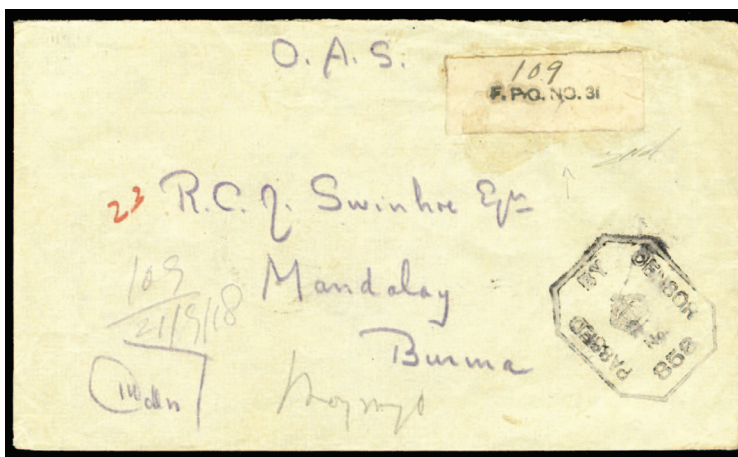 O. A. S.
109
F. P.O. NO. 31
23
R. C. J. Swinhoe Esqre
Mandalay
Burma
109
21/9/18
PASSED BY CENSOR
858